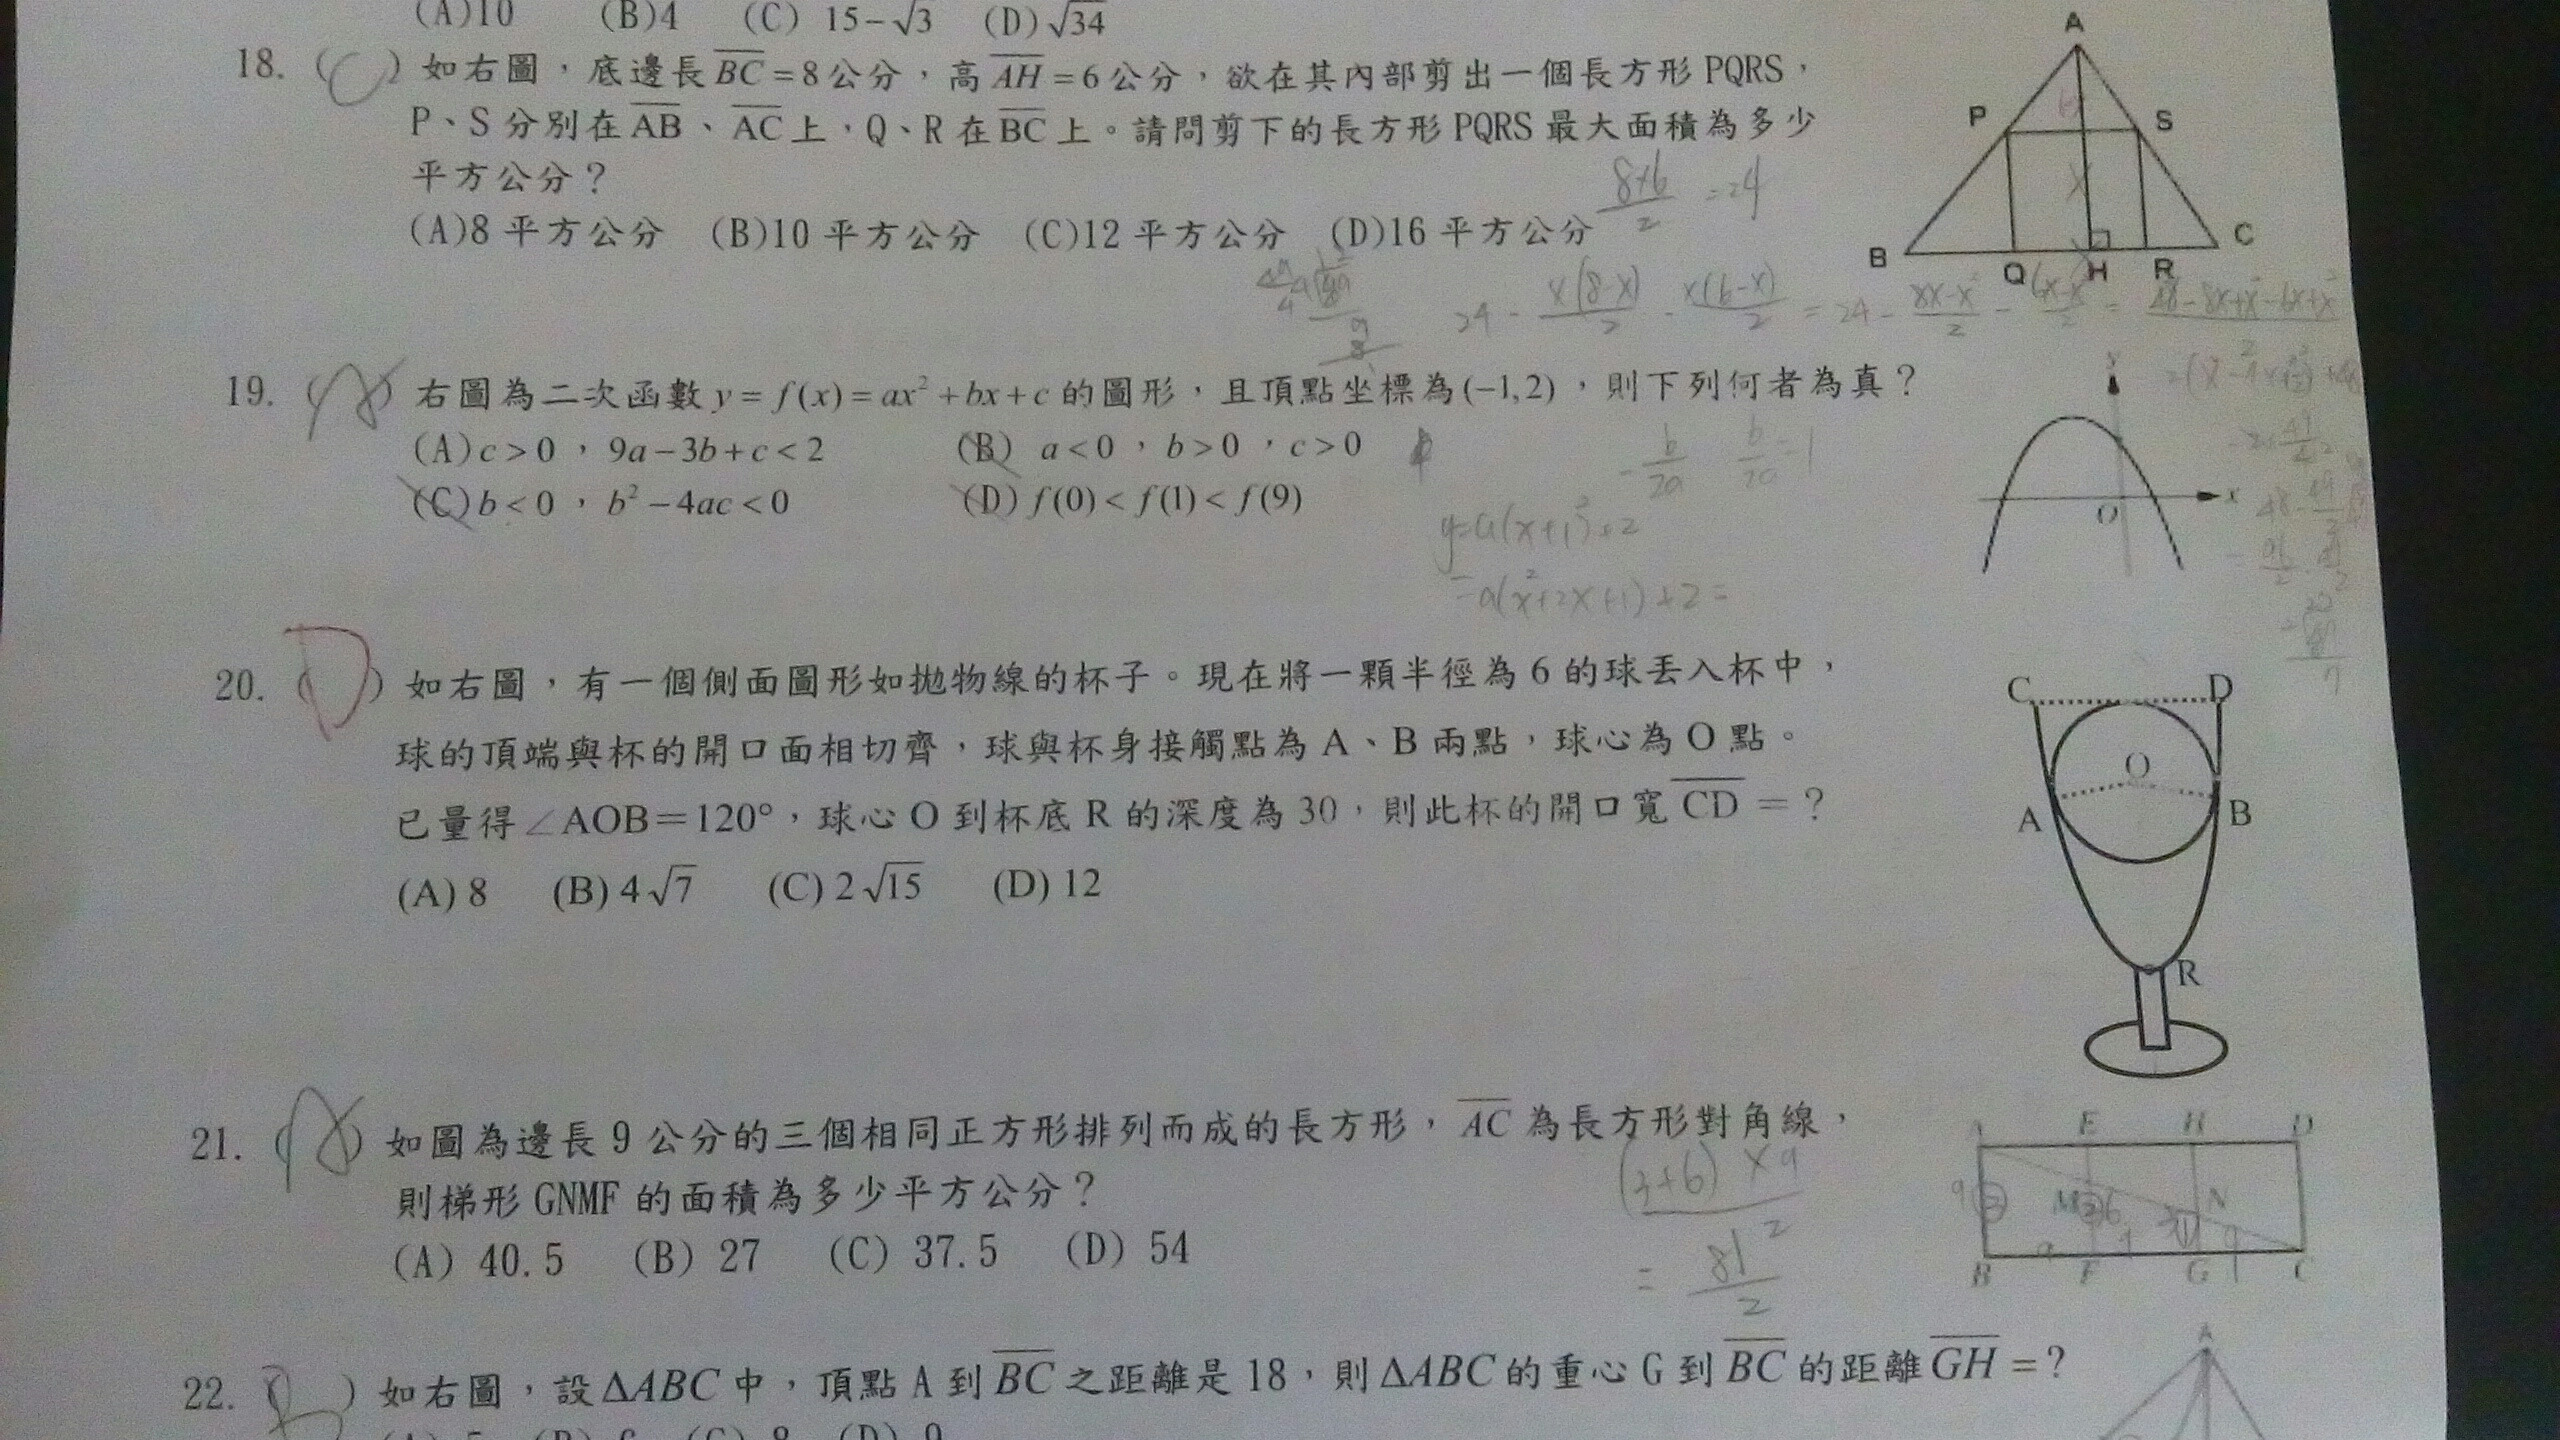 (A)10 (B)4 (C) 15−√3 (D)√34
18. (C) 如右圖，底邊長BC=8公分，高AH=6公分，欲在其內部剪出一個長方形PQRS，
P、S分別在AB、AC上，Q、R在BC上。請問剪下的長方形PQRS最大面積為多少
平方公分？
(A)8平方公分 (B)10平方公分 (C)12平方公分 (D)16平方公分
8×6/2 =24
A
P S
B Q H R C
x
24 - x(8-x)/2 - x(6-x)/2 = 24 - 8x-x²/2 - 6x-x²/2 = 48-8x+x²-6x+x²
19. (A) 右圖為二次函數y=f(x)=ax²+bx+c的圖形，且頂點坐標為(−1,2)，則下列何者為真？
(A)c>0，9a−3b+c<2 (B) a<0，b>0，c>0
(C)b<0，b²−4ac<0 (D)f(0)<f(1)<f(9)
-b/2a b/2a=1
y=a(x+1)²+2
=a(x²+2x+1)+2=
y
x
O
20. (D) 如右圖，有一個側面圖形如拋物線的杯子。現在將一顆半徑為6的球丟入杯中，
球的頂端與杯的開口面相切齊，球與杯身接觸點為A、B兩點，球心為O點。
已量得∠AOB=120°，球心O到杯底R的深度為30，則此杯的開口寬CD=？
(A) 8 (B) 4√7 (C) 2√15 (D) 12
C D
O
A B
R
21. (A) 如圖為邊長9公分的三個相同正方形排列而成的長方形，AC為長方形對角線，
則梯形GNMF的面積為多少平方公分？
(A) 40.5 (B) 27 (C) 37.5 (D) 54
(3+6)×9/2
= 81/2
A E H D
9 M 6 N
B F G C
22. (B) 如右圖，設ΔABC中，頂點A到BC之距離是18，則ΔABC的重心G到BC的距離GH=?
A
(A) 5 (B) 6 (C) 8 (D) 9